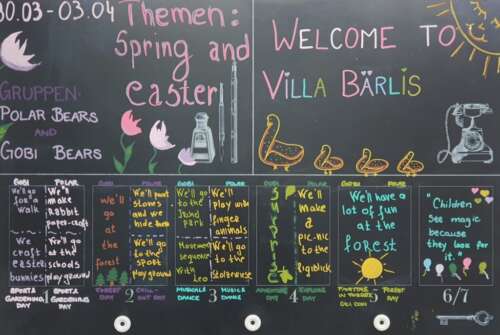 30.03 - 03.04
Themen:
Spring and
easter
GRUPPEN:
POLAR BEARS
AND
GOBI BEARS
WELCOME TO
VILLA BÄRLIS
GOBI
We'll go
for a
walk
We
craft
easter
bunnies
SPORT &
GARDENING
DAY
1
POLAR
We'll
make
Rabbit
paper-craft
We'll
go to the
schools
playground
SPORT &
GARDENING
DAY
GOBI
we'll
go
at
the
forest
FOREST
DAY
2
POLAR
We'll paint
stones
and we
hide them
We'll go
to the
sport
playground
CHILL
OUT DAY
GOBI
We'll go
to the
Movement
sequence
with
Leo
MUSIC &
DANCE
3
POLAR
We'll
play with
finger
animals
We'll go
to the
MUSIC &
DANCE
GOBI
Surprise
ADVENTURE
DAY
4
POLAR
We'll
make
a
pic-nic
to the
EXPLORE
DAY
GOBI
POLAR
We'll have
a lot of
fun at
the
forest
5
FOREST
DAY
"Children
see magic
because
they look
for it."
6/7